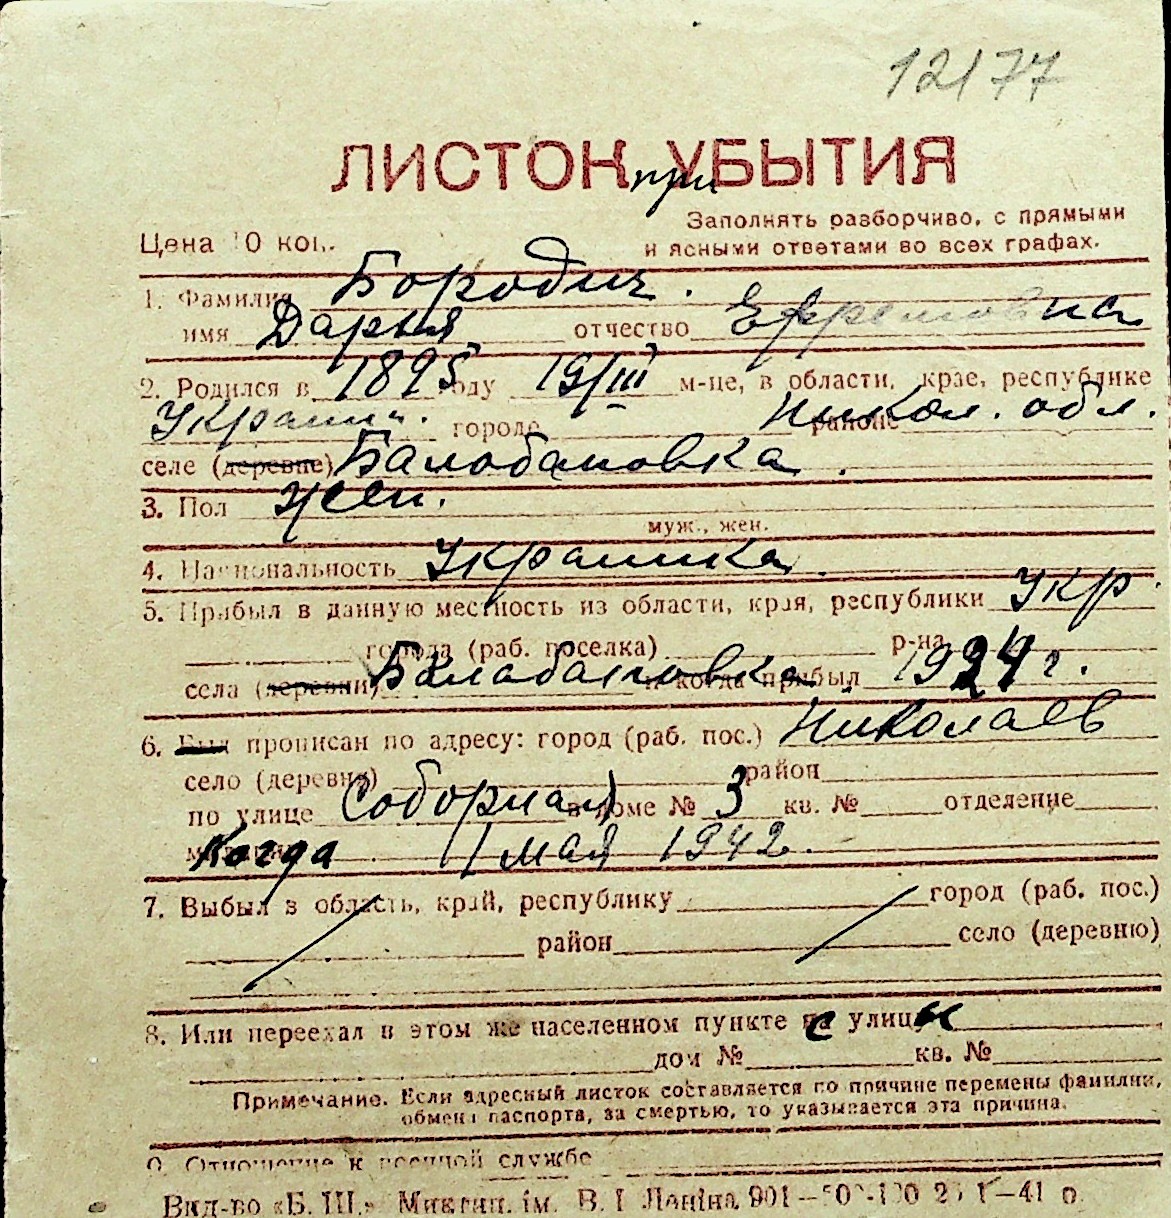 12177
ЛИСТОК при УБЫТИЯ
Заполнять разборчиво, с прямыми
Цена 10 коп. и ясными ответами во всех графах.
1. Фамилия Бородич.
имя Дарья отчество Ефремовна
2. Родился в 1895 году 19/III м-це, в области, крае, республике
Украин. городе районе Никол. обл.
селе (деревне) Балобановка.
3. Пол жен.
муж., жен.
4. Национальность Украинка.
5. Прибыл в данную местность из области, края, республики Укр.
города (раб. поселка) р-на
села (деревни) Балабановка и когда прибыл 1924 г.
6. Был прописан по адресу: город (раб. пос.) Николаев
село (деревня) район
по улице Соборная в доме № 3 кв. № отделение
Когда 1 мая 1942.
7. Выбыл в область, край, республику город (раб. пос.)
район село (деревню)
8. Или переехал в этом же населенном пункте с улицы
дом № кв. №
Примечание. Если адресный листок составляется по причине перемены фамилии,
обмена паспорта, за смертью, то указывается эта причина.
9. Отношение к военной службе
Вид-во «Б. Ш.» Миктип. ім. В. І. Леніна 901 —41 р.